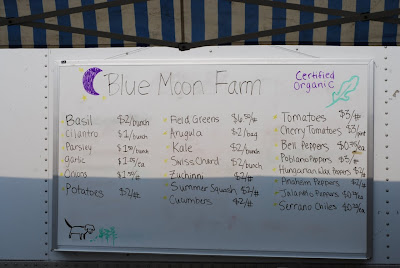 Blue Moon Farm
Certified
Organic
Basil $2/bunch
Cilantro $1/bunch
Parsley $1.50/bunch
garlic /ea
Onions
Potatoes $2/#
Field Greens $6.50/#
Arugula $2/bag
Kale $2/bunch
Swiss Chard $2/bunch
Zuchinni $2/#
Summer Squash $2/#
Cucumbers $2/#
Tomatoes $3/#
Cherry Tomatoes $3/pint
Bell Peppers /ea
Poblano Peppers $3/#
Hungarian Wax Peppers
Anaheim Peppers
Jalapeño Peppers /ea
Serrano Chiles /ea